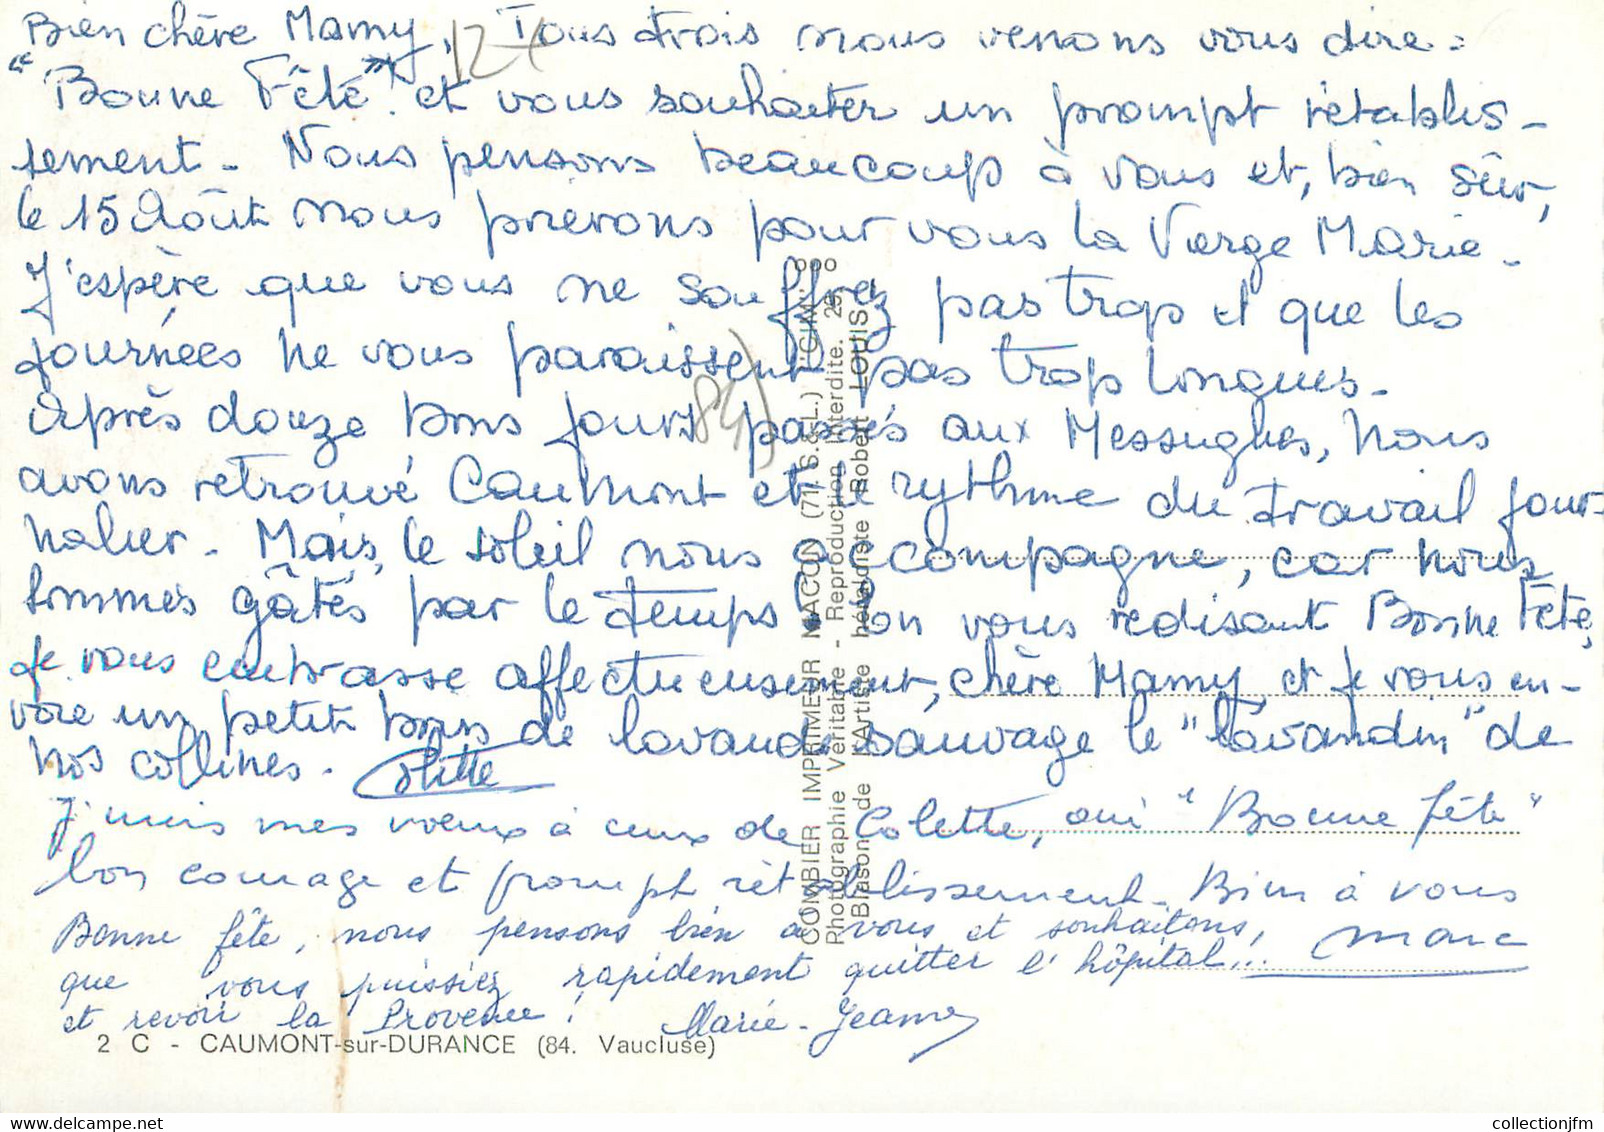 Bien chère Mamy, Tous trois nous venons vous dire :
"Bonne Fête" ! et vous souhaiter un prompt rétablis-
sement - Nous pensons beaucoup à vous et, bien sûr,
le 15 Août nous prierons pour vous la Vierge Marie -
J'espère que vous ne souffrez pas trop et que les
journées ne vous paraissent pas trop longues -
Après douze bons jours passés aux Messughes, nous
avons retrouvé Caumont et le rythme du travail jour-
nalier - Mais, le soleil nous accompagne, car nous
sommes gâtés par le temps ! En vous redisant Bonne Fête,
je vous embrasse affectueusement, chère Mamy, et je vous en-
voie un petit brins de lavande sauvage le "lavandin" de
nos collines - Colette
J'unis mes voeux à ceux de Colette, oui "Bonne fête"
bon courage et prompt rétablissement - Bien à vous
Marc
Bonne fête, nous pensons bien à vous et souhaitons,
que vous puissiez rapidement quitter l'hôpital...
et revoir la Provence ! Marie-Jeanne
2 C - CAUMONT-sur-DURANCE (84. Vaucluse)
COMBIER IMPRIMEUR MACON (71. S.-&-L.) "CIM"
Photographie Véritable - Reproduction Interdite.
Blason de l'Artiste héraldiste Robert LOUIS
12
84)
collectionjfm